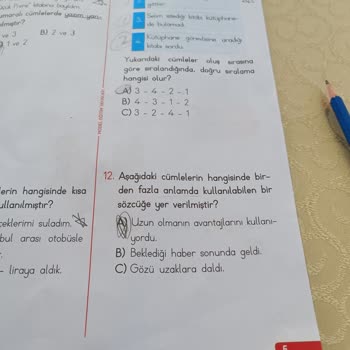 gitti.
3. Selim istediği kitabı kütüphane-
de bulamadı.
Kütüphane görevlisine aradığı
kitabı sordu.
Yukarıdaki cümleler oluş sırasına
göre sıralandığında, doğru sıralama
hangisi olur?
A) 3 - 4 - 2 - 1
B) 4 - 3 - 1 - 2
C) 3 - 2 - 4 - 1
12. Aşağıdaki cümlelerin hangisinde bir-
den fazla anlamda kullanılabilen bir
sözcüğe yer verilmiştir?
A) Uzun olmanın avantajlarını kullanı-
yordu.
B) Beklediği haber sonunda geldi.
C) Gözü uzaklara daldı.
cümlelerde
ılmıştır?
ve 3
B) 2 ve 3
1 ve 2
lerin hangisinde kısa
ullanılmıştır?
çeklerimi suladım.
bul arası otobüsle
- liraya aldık.
5